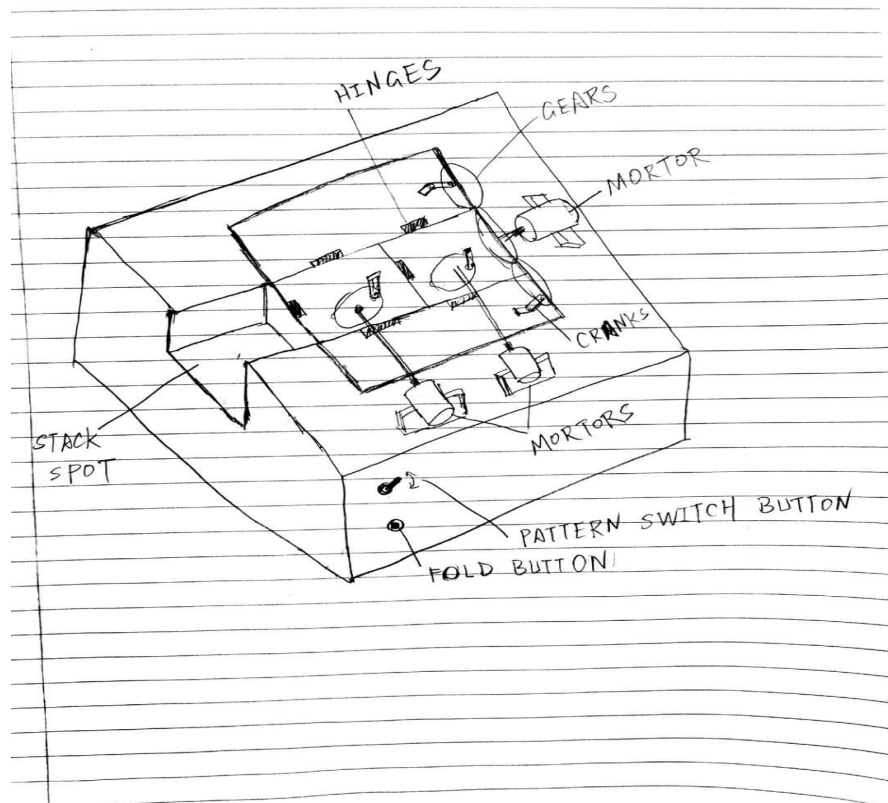 HINGES
GEARS
MORTOR
CRANKS
MORTORS
STACK
SPOT
PATTERN SWITCH BUTTON
FOLD BUTTON